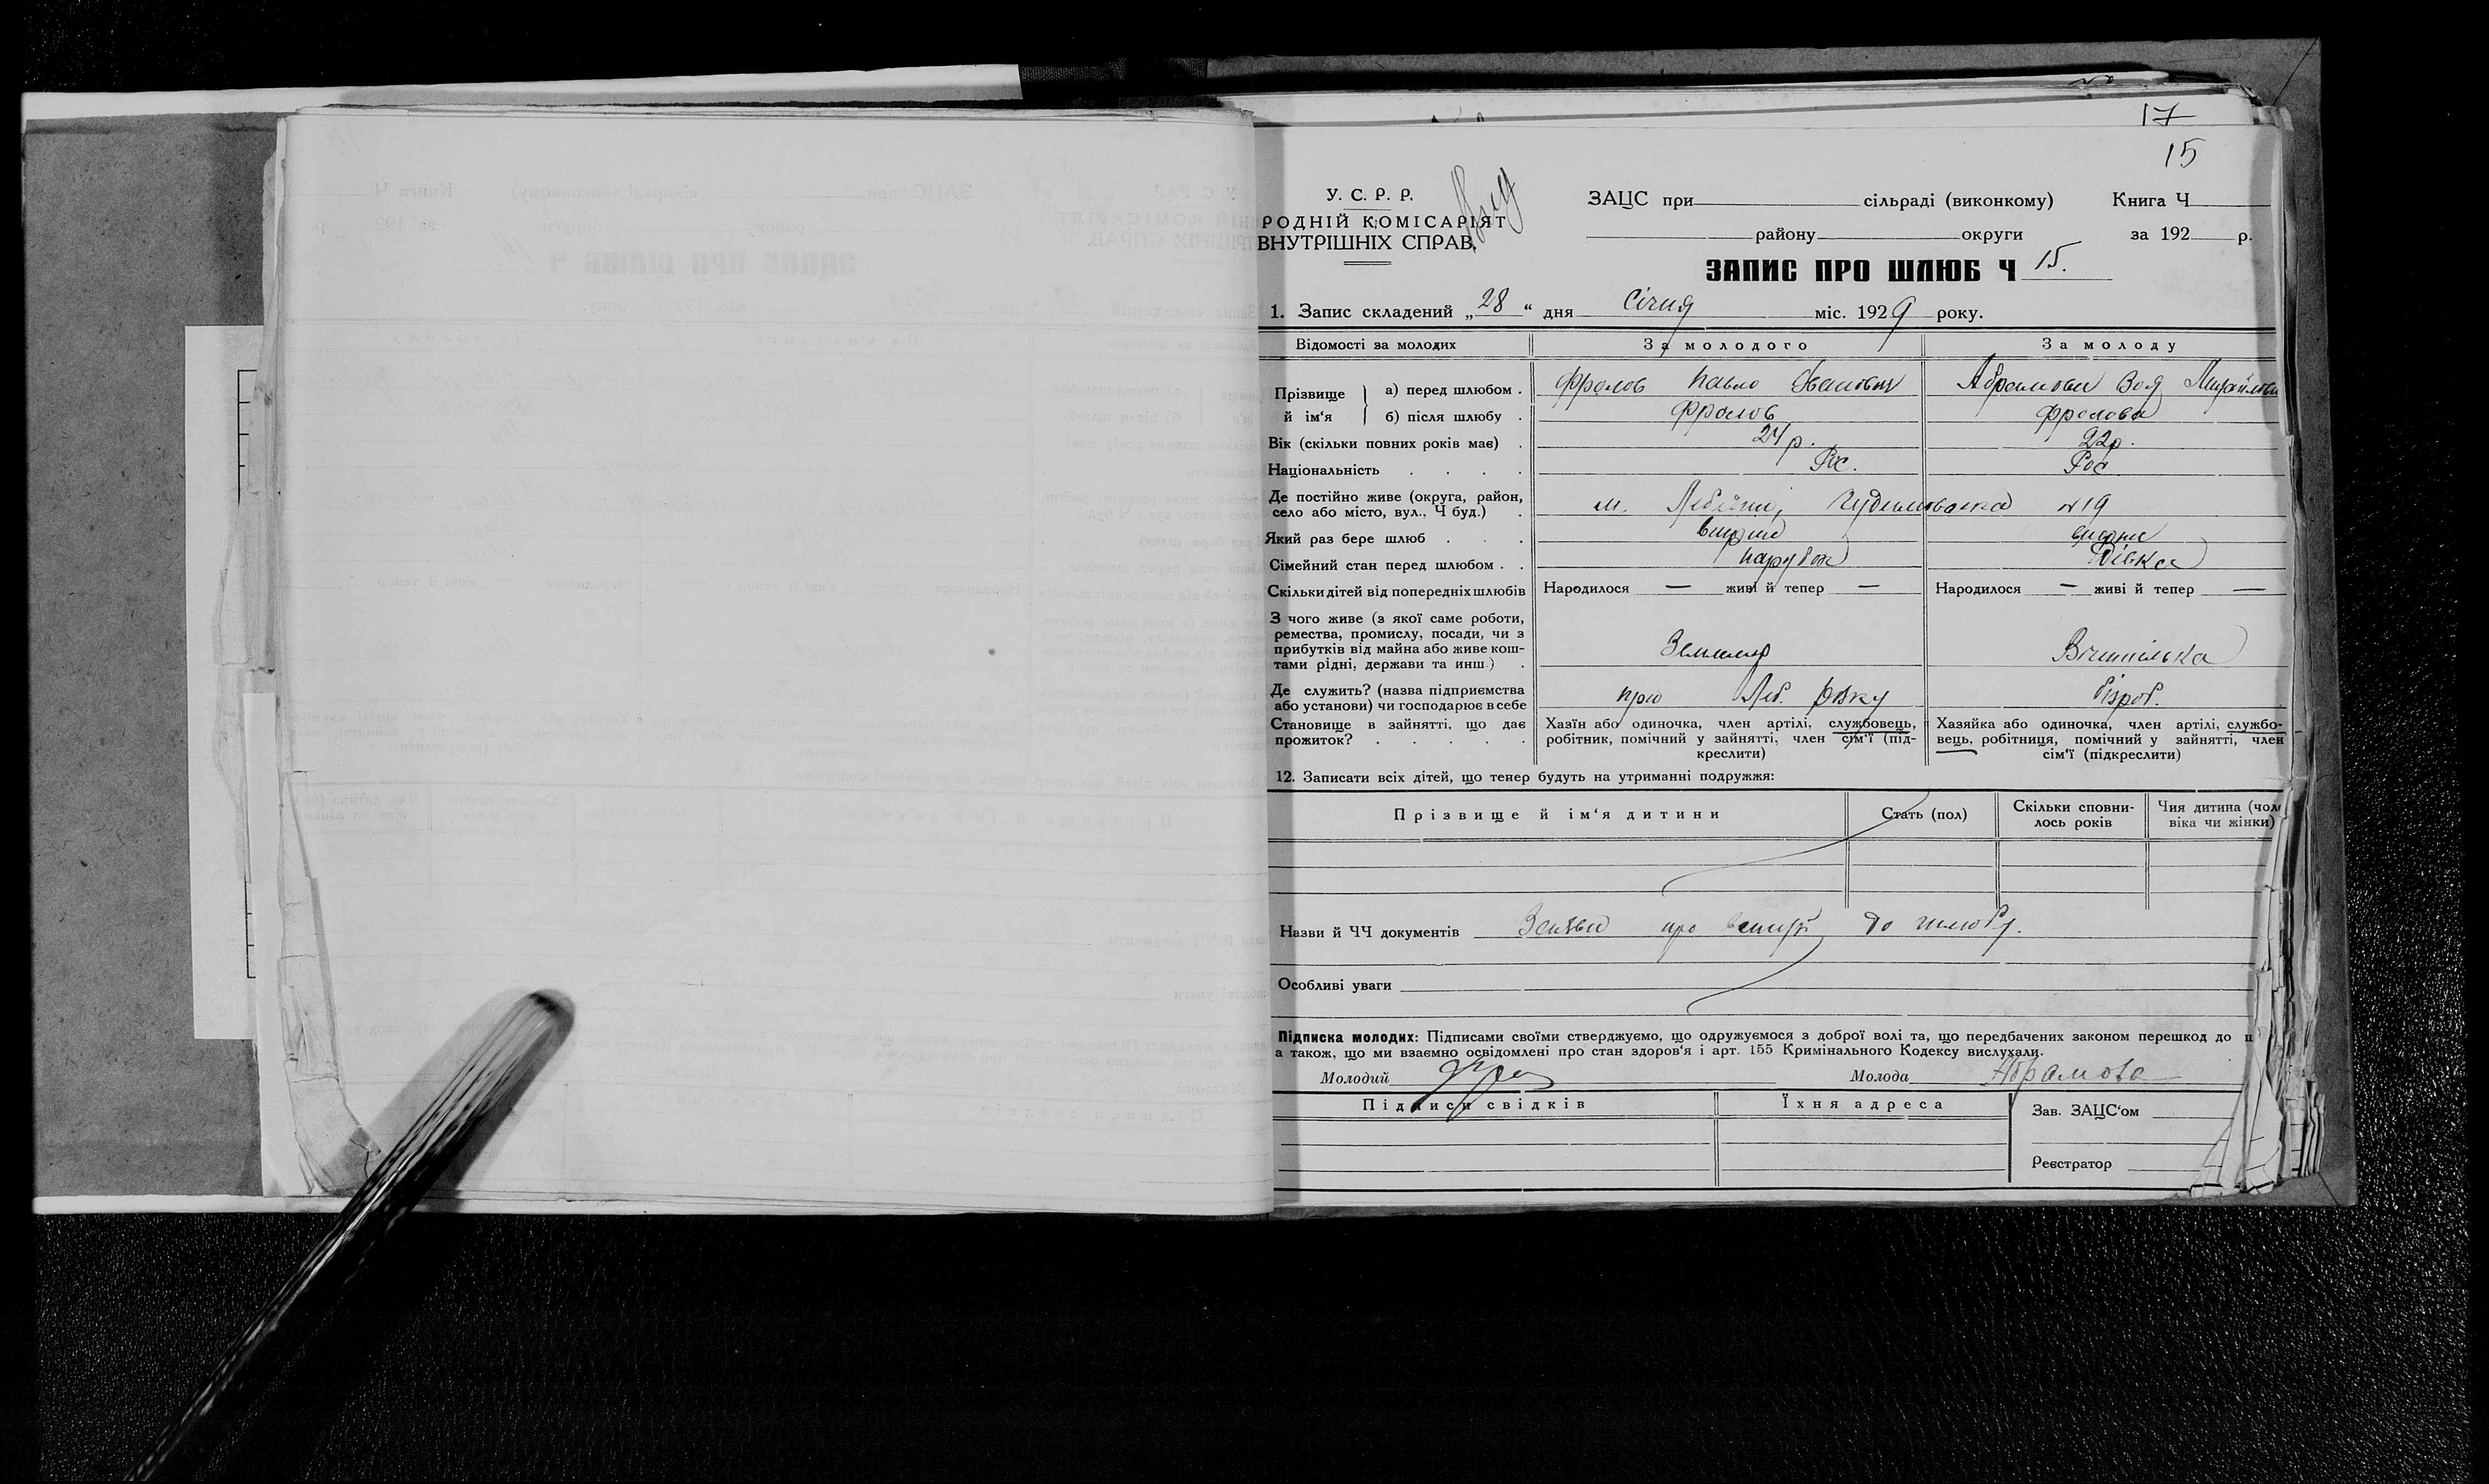 17
15
У. С. Р. Р.
РОДНІЙ КОМІСАРІЯТ
ВНУТРІШНІХ СПРАВ.
ЗАЦС при сільраді (виконкому) Книга Ч
району округи за 192 р.
ЗАПИС ПРО ШЛЮБ Ч 15.
1. Запис складений „28“ дня Січня міс. 1929 року.
Відомості за молодих За молодого За молоду
Прізвище й ім‘я а) перед шлюбом . Фролов Павло Іванович Абрамова Зоя Михайлов
б) після шлюбу . Фролов Фролова
Вік (скільки повних років має) . 24 р. 22 р.
Національність . . . . Рос. Рос
Де постійно живе (округа, район,
село або місто, вул., Ч буд.) . м. Лебедин, №19
Який раз бере шлюб . . . вперше вперше
Сімейний стан перед шлюбом . . парубок дівка
Скільки дітей від попередніх шлюбів Народилося — живі й тепер — Народилося — живі й тепер —
З чого живе (з якої саме роботи,
ремества, промислу, посади, чи з
прибутків від майна або живе кош-
тами рідні, держави та инш.) . Землемір Вчителька
Де служить? (назва підприємства
або установи) чи господарює в себе при Леб. РВКу безроб.
Становище в зайнятті, що дає
прожиток? . . . . .
Хазїн або одиночка, член артілі, службовець,
робітник, помічний у зайнятті, член сім‘ї (під-
креслити)
Хазяйка або одиночка, член артілі, службо-
вець, робітниця, помічний у зайнятті, член
сім‘ї (підкреслити)
12. Записати всіх дітей, що тепер будуть на утриманні подружжя:
Прізвище й ім‘я дитини Стать (пол) Скільки сповни-
лось років Чия дитина (чоло
віка чи жінки)
Назви й ЧЧ документів Заява про вступ до шлюбу.
Особливі уваги
Підписка молодих: Підписами своїми стверджуємо, що одружуємося з доброї волі та, що передбачених законом перешкод до ш
а також, що ми взаємно освідомлені про стан здоров‘я і арт. 155 Кримінального Кодексу вислухали.
Молодий Молода Абрамова
Підписи свідків Їхня адреса Зав. ЗАЦС‘ом
Реєстратор